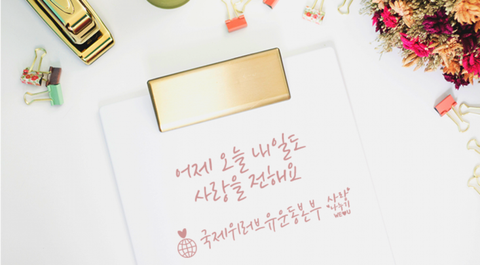 어제 오늘 내일도
사랑을 전해요
국제위러브유운동본부